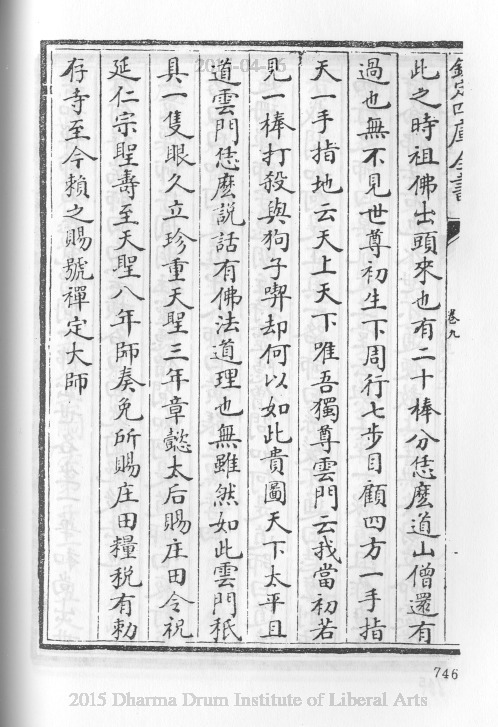 欽定四庫全書
卷九
此之時祖佛出頭來也有二十棒分恁麽道山僧還有
過也無不見世尊初生下周行七步目顧四方一手指
天一手指地云天上天下唯吾獨尊雲門云我當初若
見一棒打殺與狗子喫却何以如此貴圖天下太平且
道雲門恁麽説話有佛法道理也無雖然如此雲門秖
具一隻眼久立珍重天聖三年章懿太后賜庄田令祝
延仁宗聖壽至天聖八年師奏免所賜庄田糧税有勅
存寺至今賴之賜號禪定大師
746
2015 Dharma Drum Institute of Liberal Arts